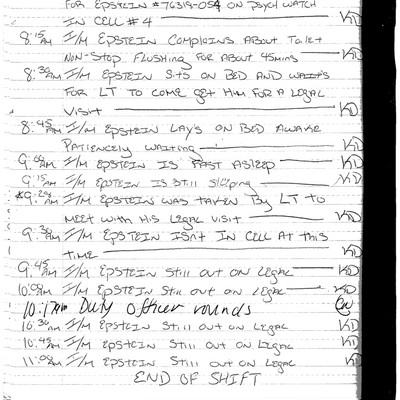 FOR EPSTEIN #76318-054 ON PSYCH WATCH
IN CELL #4 KD
8:15AM I/M EPSTEIN COMPLAINS ABOUT TOILET
NON-STOP FLUSHING FOR ABOUT 45MINS KD
8:30AM I/M EPSTEIN SITS ON BED AND WAITS
FOR LT TO COME GET HIM FOR A LEGAL
VISIT KD
8:45AM I/M EPSTEIN LAYS ON BED AWAKE
PATIENCELY WAITING KD
9:00AM I/M EPSTEIN IS FAST ASLEEP KD
9:15AM I/M EPSTEIN IS STILL SLEEPING KD
*9:20AM I/M EPSTEIN WAS TAKEN BY LT TO
MEET WITH HIS LEGAL VISIT KD
9:30AM I/M EPSTEIN ISN'T IN CELL AT THIS
TIME KD
9:45AM I/M EPSTEIN STILL OUT ON LEGAL KD
10:00AM I/M EPSTEIN STILL OUT ON LEGAL KD
10:17AM Duty officer rounds
10:30AM I/M EPSTEIN STILL OUT ON LEGAL KD
10:45AM I/M EPSTEIN STILL OUT ON LEGAL KD
11:00AM I/M EPSTEIN STILL OUT ON LEGAL KD
END OF SHIFT